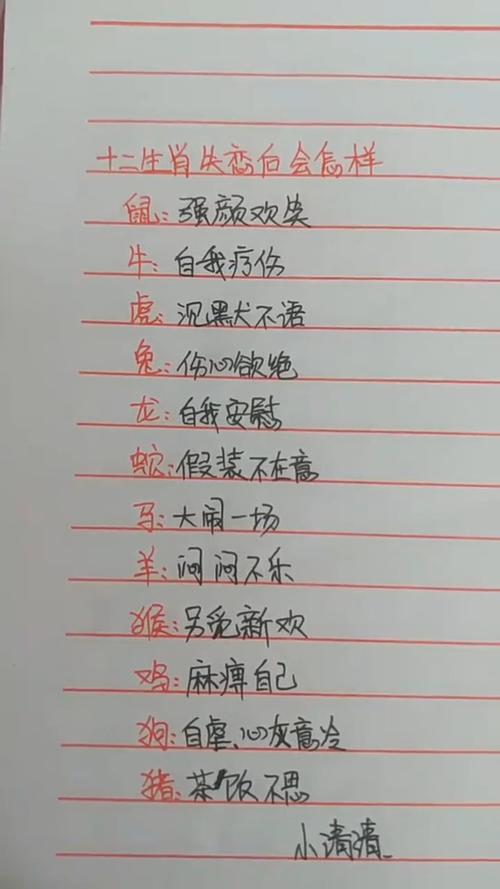 十二生肖失恋后会怎样
鼠:强颜欢笑
牛:自我疗伤
虎:沉默不语
兔:伤心欲绝
龙:自我安慰
蛇:假装不在意
马:大闹一场
羊:闷闷不乐
猴:另觅新欢
鸡:麻痹自己
狗:自虐、心灰意冷
猪:茶饭不思
小清清